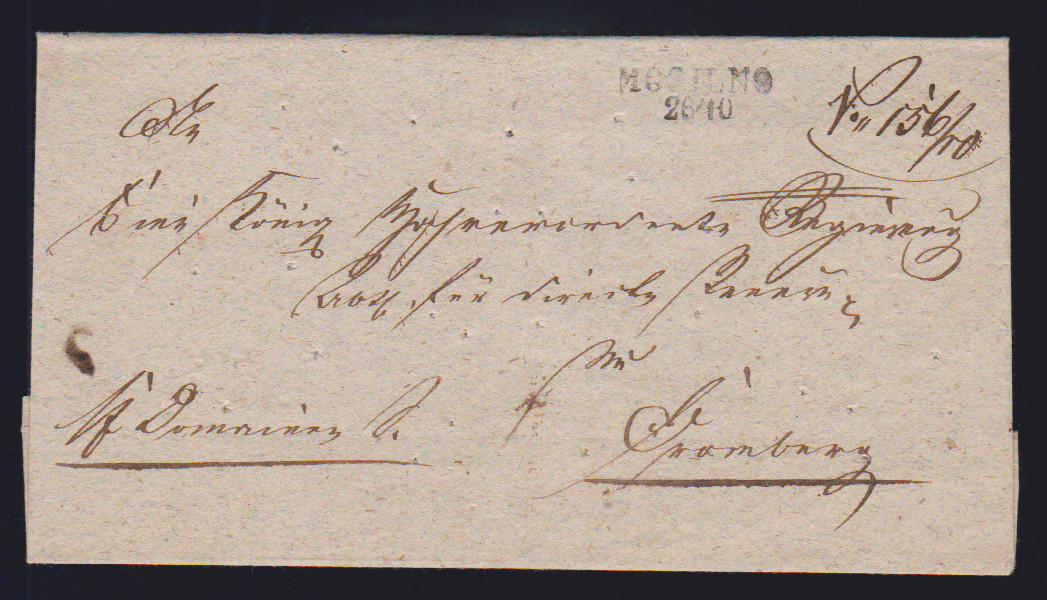 MOGILNO
26/10
No 156/10
An
Eine Königl Hochverordnete Regierung
Abth. für directe Steuern
zu
Bromberg
Domainen S.